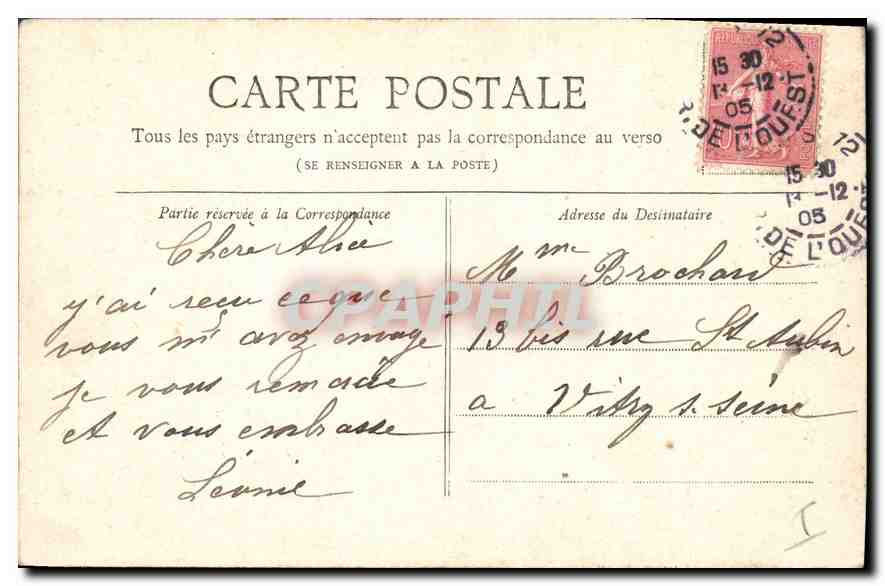 CARTE POSTALE
Tous les pays étrangers n'acceptent pas la correspondance au verso
(SE RENSEIGNER A LA POSTE)
Partie réservée à la Correspondance
Chère Alice
j'ai reçu ce que
vous m' avez envoyé
je vous remercie
et vous embrasse
Léonie
Adresse du Destinataire
Mme Brochard
13 bis rue St Aubin
a Vitry s. seine
15 30
13 -12
05
R. DE L'OUEST
12
15 30
13 -12
05
R. DE L'OUEST
12
CPAPHIL